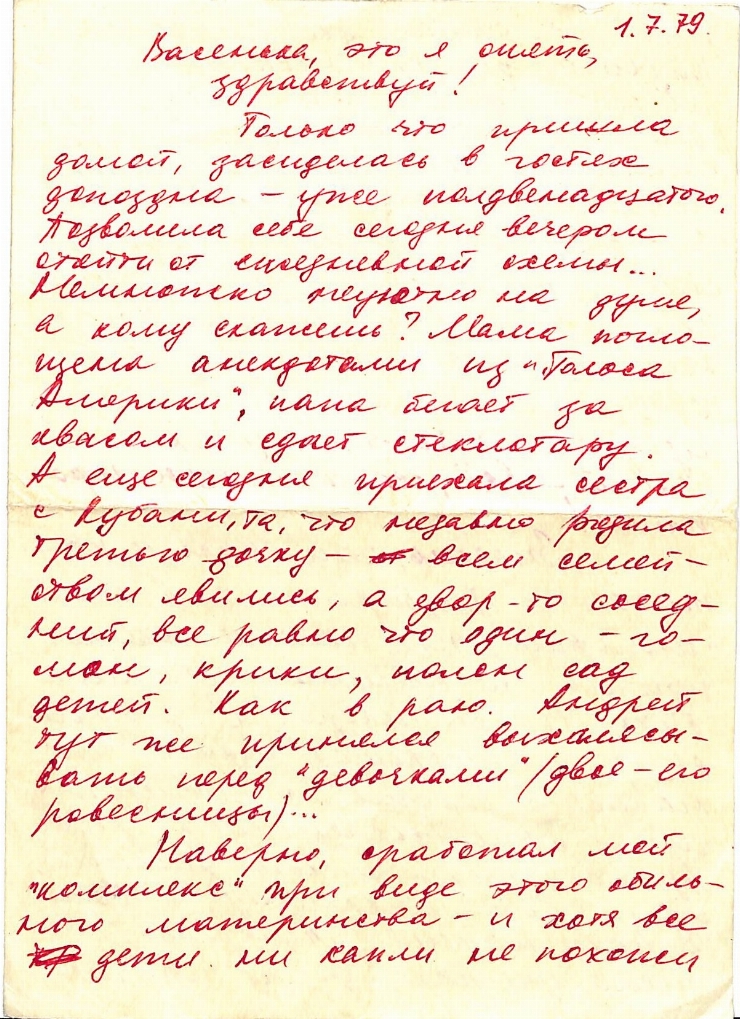 1.7.79.
Васенька, это я опять,
здравствуй!
Только что пришла
домой, засиделась в гостях
допоздна – уже полдвенадцатого.
Позволила себе сегодня вечером
отойти от ежедневной схемы...
Немножко неуютно на душе,
а кому скажешь? Мама погло-
щена анекдотами из "Голоса
Америки", папа бегает за
квасом и сдает стеклотару.
А еще сегодня приехала сестра
с Кубани, та, что недавно родила
третью дочку – всем семей-
ством явились, а двор-то сосед-
ний, все равно что один – го-
мон, крики, полон сад
детей. Как в раю. Андрей
тут же принялся выхалясы-
вать перед "девочками" (двое – его
ровесницы)...
Наверно, сработал мой
"комплекс" при виде этого обиль-
ного материнства – и хотя все
дети ни капли не похожи